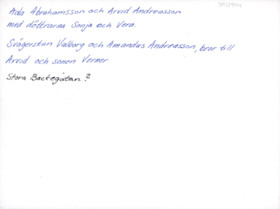 Aida Abrahamsson och Arvid Andreasson
med döttrarna Sonja och Vera.
Svägerskan Valborg och Amandus Andreasson, bror till
Arvid och sonen Verner
Stora Backegatan ?